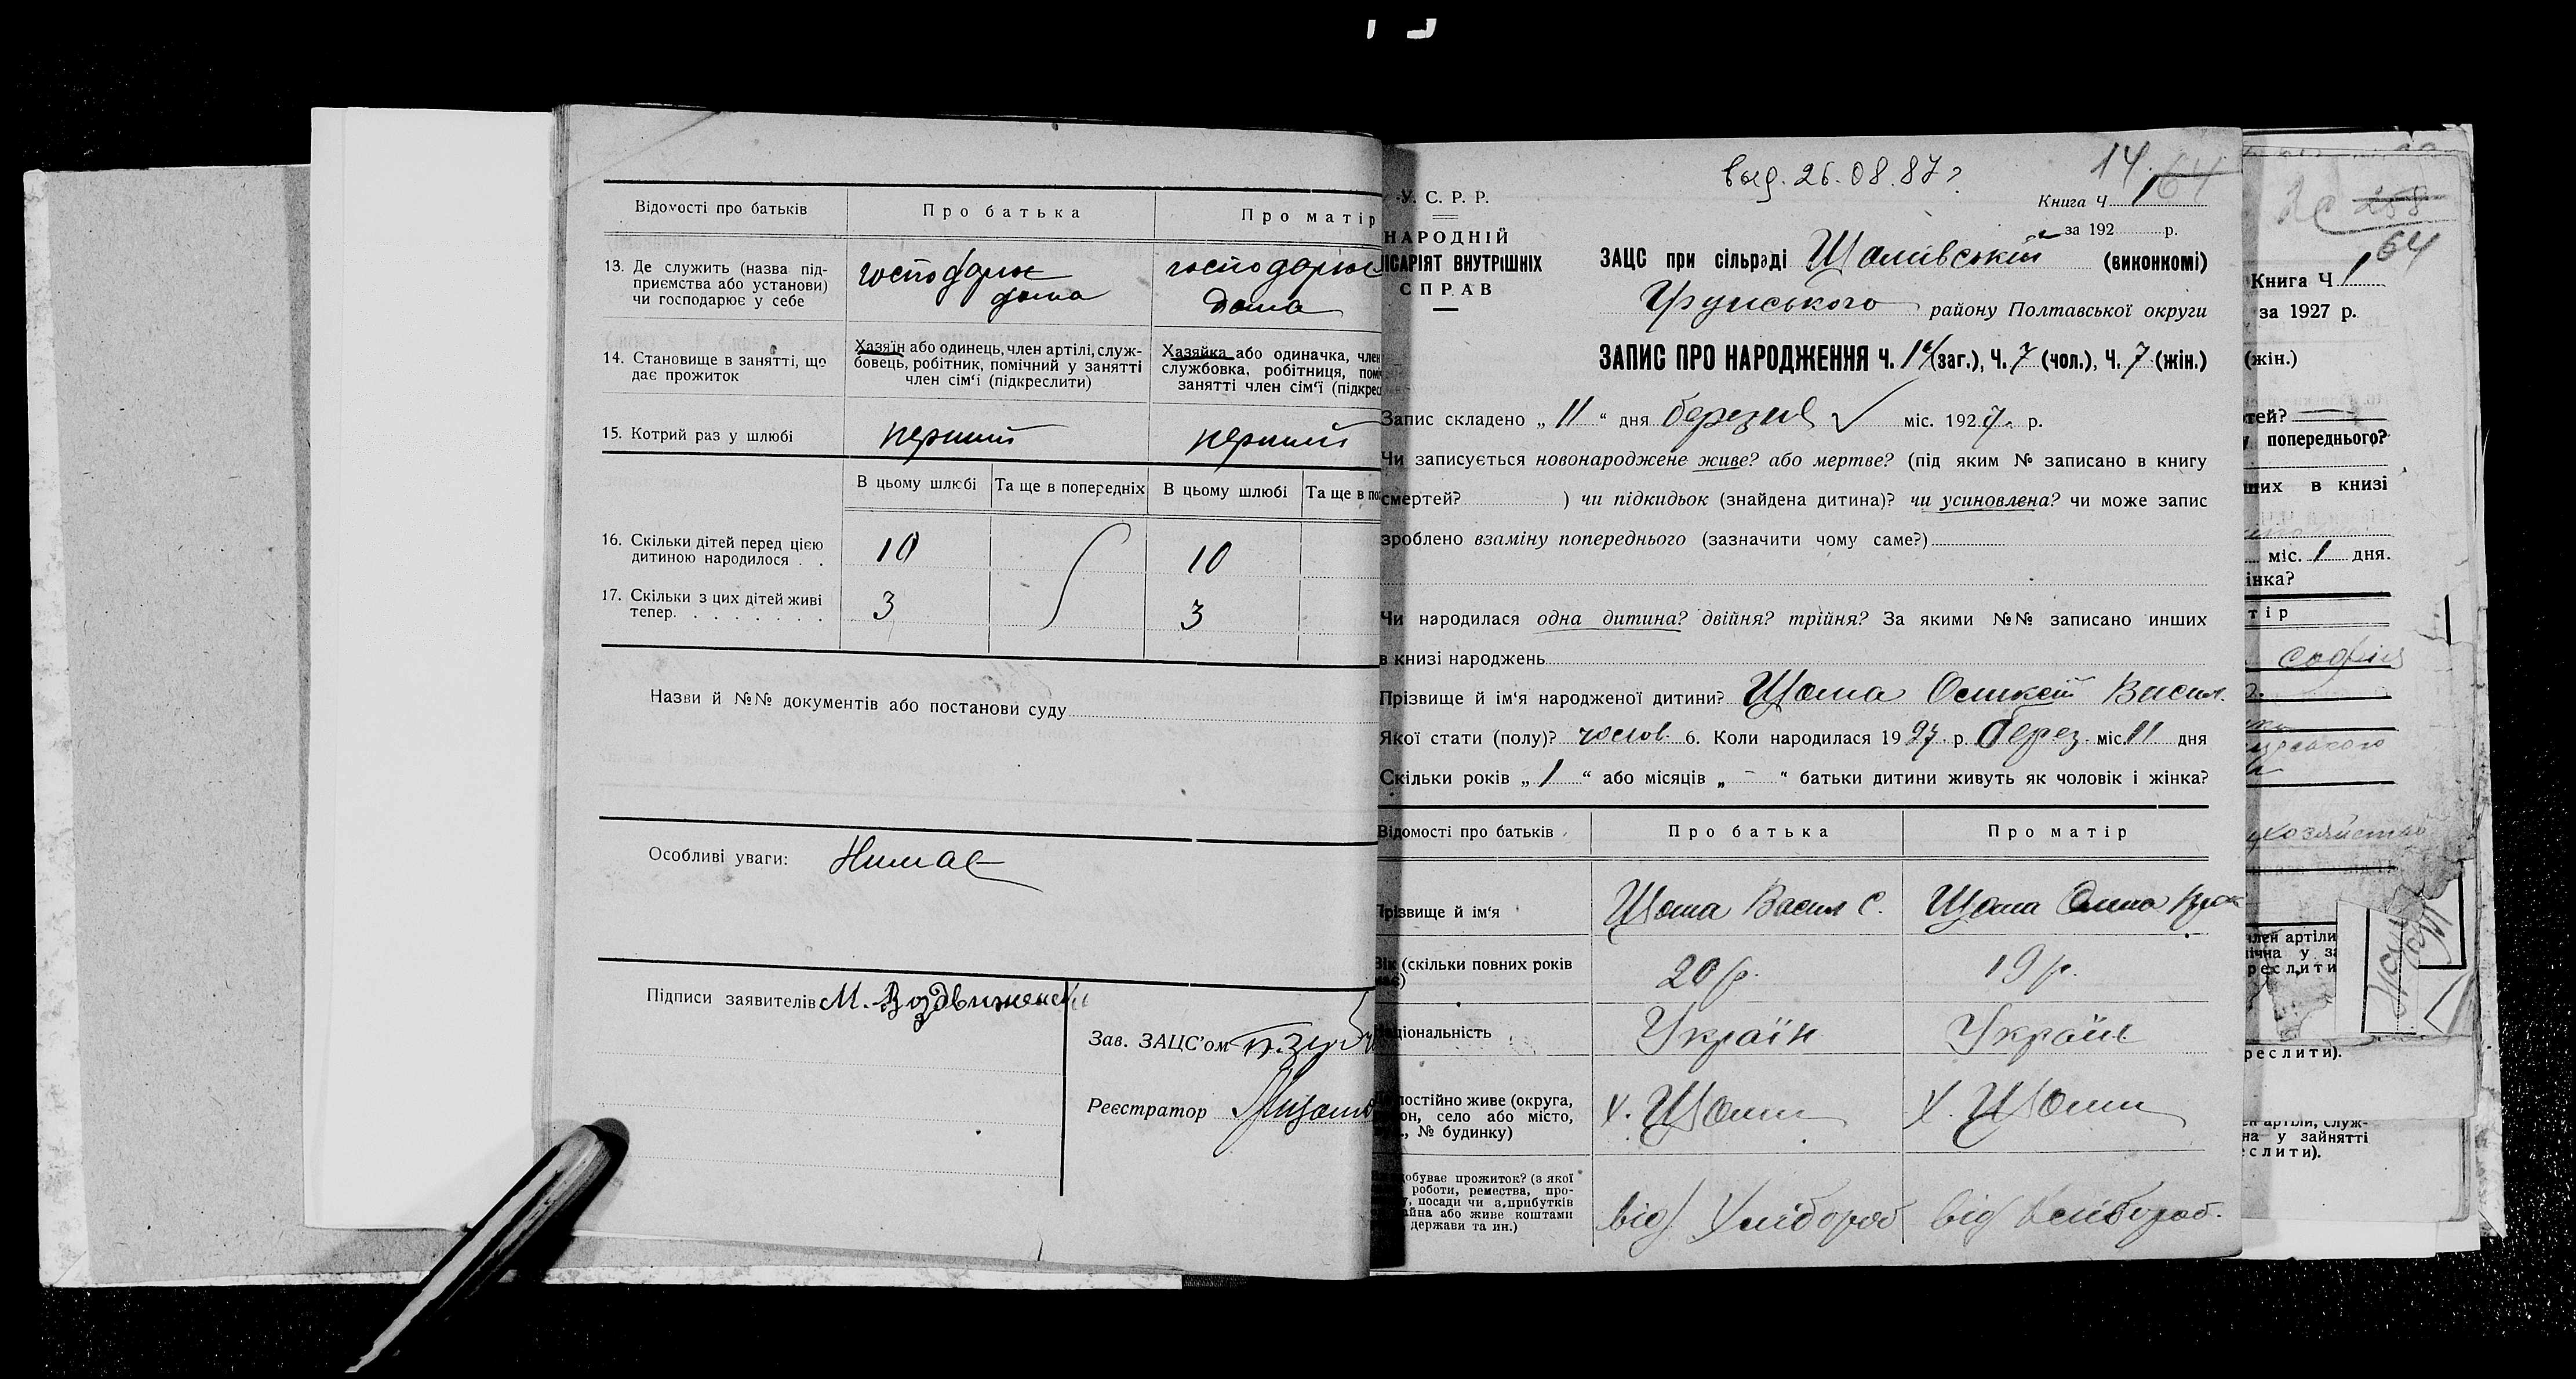 Відомості про батьків
Про батька
Про матір
13. Де служить (назва під-
приємства або установи)
чи господарює у себе
господарює
дома
господарює
дома
14. Становище в занятті, що
дає прожиток
Хазяїн або одинець, член артілі, служ-
бовець, робітник, помічний у занятті
член сім'ї (підкреслити)
Хазяйка або одиначка, член
службовка, робітниця,
занятті член сім'ї
15. Котрий раз у шлюбі
перший
перший
В цьому шлюбі
Та ще в попередніх
В цьому шлюбі
Та ще в
16. Скільки дітей перед цією
дитиною народилося . .
10
10
17. Скільки з цих дітей живі
тепер. . . . . . . .
3
3
Назви й №№ документів або постанови суду
Особливі уваги:
Нимає
Підписи заявителів М.
Зав. ЗАЦС'ом
Реєстратор
выд. 26.08.87 г
14
64
У. С. Р. Р.
НАРОДНІЙ
ВНУТРІШНІХ
СПРАВ
Книга Ч. 1
за 192 р.
ЗАЦС при сільраді (виконкомі)
району Полтавської округи
ЗАПИС ПРО НАРОДЖЕННЯ Ч. 14 (заг.), Ч. 7 (чол.), Ч. 7 (жін.)
Запис складено „ 11 “ дня березня міс. 1927. р.
Чи записується новонароджене живе? або мертве? (під яким № записано в книгу
смертей? ) чи підкидьок (знайдена дитина)? чи усиновлена? чи може запис
зроблено взаміну попереднього (зазначити чому саме?)
Чи народилася одна дитина? двійня? трійня? За якими №№ записано инших
в книзі народжень
Прізвище й ім'я народженої дитини? Васил.
Якої стати (полу)? чолов. 6. Коли народилася 1927. р. берез. міс. 11 дня
Скільки років „ 1 “ або місяців „ - “ батьки дитини живуть як чоловік і жінка?
Відомості про батьків
Про батька
Про матір
Прізвище й ім'я
Васил С.
Вік (скільки повних років
має)
20 р.
19 р.
Національність
Україн
Україн
постійно живе (округа,
село або місто,
№ будинку)
х.
х.
добуває прожиток? (з якої
роботи, ремества, про-
посади чи з прибутків
або живе коштами
держави та ин.)
від хлібороб
від хлібороб.
258
64
Книга Ч 1
за 1927 р.
(жін.)
попереднього?
в книзі
міс. 1 дня.
Софія
артілі, служ-
у зайнятті